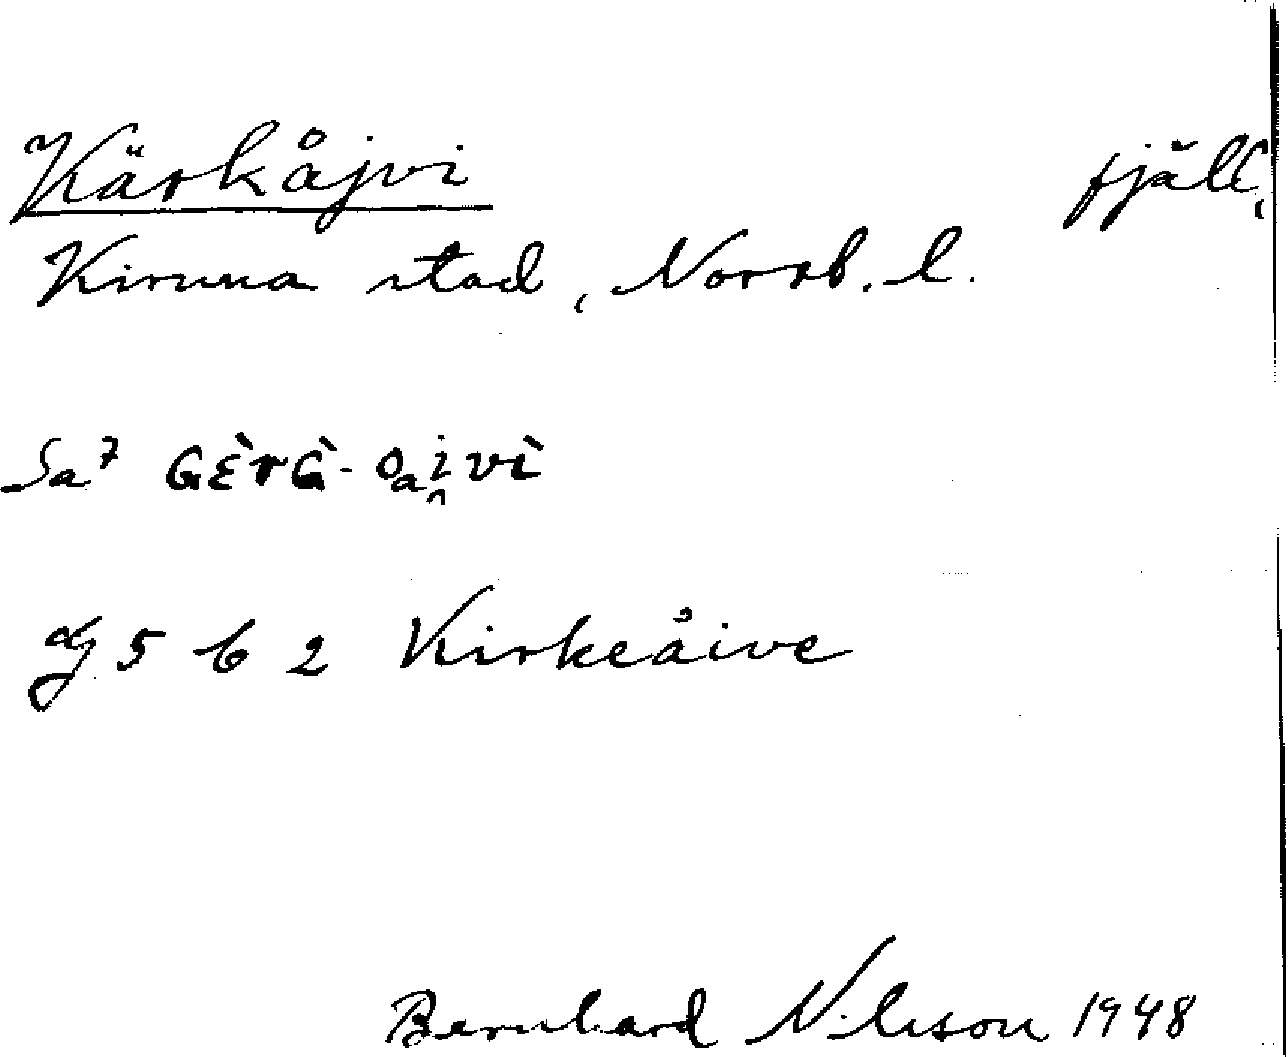 Kärkåjvi fjäll,
Kiruna stad, Norrb. l.
Sa7 GÈrG̀-oaivì
G 5 b 2 Kirkeåive
Bernhard Nilsson 1948